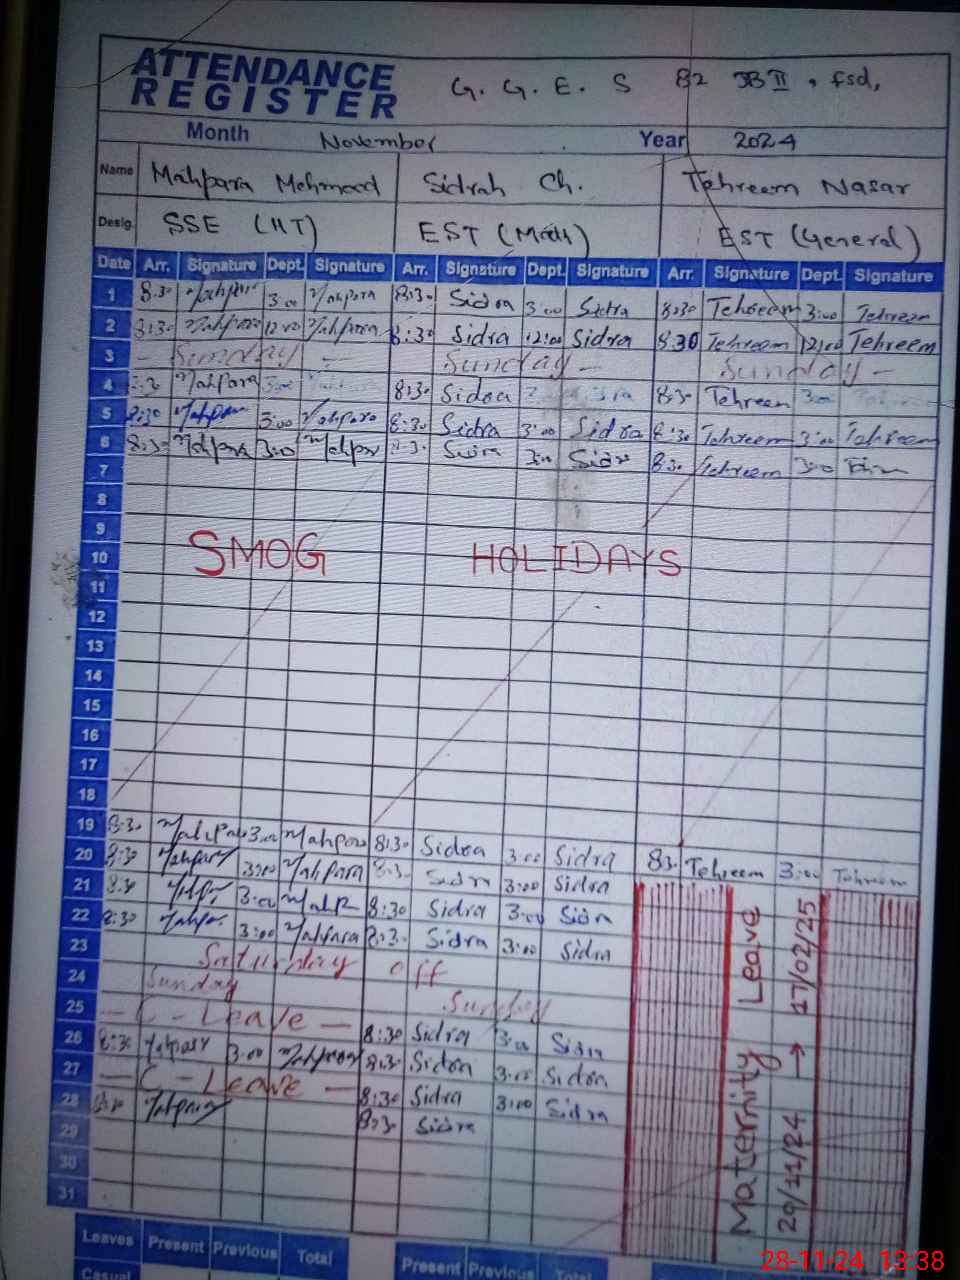 ATTENDANCE
REGISTER
G. G. E. S 82 JB II, fsd,
Month November Year 2024
Name Mahpara Mehmood Sidrah Ch. Tehreem Nasar
Desig. SSE (IIT) EST (Math) EST (General)
Date Arr. Signature Dept. Signature Arr. Signature Dept. Signature Arr. Signature Dept. Signature
1 8:30 Mahpara 3:00 Mahpara 8:30 Sidra 3:00 Sidra 8:30 Tehreem 3:00 Tehreem
2 8:30 Mahpara 12:00 Mahpara 8:30 Sidra 12:00 Sidra 8:30 Tehreem 12:00 Tehreem
3 - Sunday - Sunday - Sunday -
4 Mahpara 3:00 8:30 Sidra 8:30 Tehreem 3:00
5 8:30 Mahpara 3:00 Mahpara 8:30 Sidra 3:00 Sidra 8:30 Tehreem 3:00 Tehreem
6 8:30 Mahpara 3:00 Mahpara Sidra 3:00 Sidra 8:30 Tehreem 3:00
7
8
9
10 SMOG HOLIDAYS
11
12
13
14
15
16
17
18
19 8:30 Mahpara 3:00 Mahpara 8:30 Sidra 3:00 Sidra 8:30 Tehreem 3:00 Tehreem
20 8:30 Mahpara 3:00 Mahpara 8:30 Sidra 3:00 Sidra
21 8:30 3:00 8:30 Sidra 3:00 Sidra
22 8:30 3:00 Mahpara 8:30 Sidra 3:00 Sidra
23 Saturday off
24 Sunday Sunday
25 - C - Leave - 8:30 Sidra 3:00 Sidra
26 8:30 Mahpara 3:00 Mahpara 8:30 Sidra 3:00 Sidra
27 - C - Leave - 8:30 Sidra 3:00 Sidra
28 Mahpara 8:30 Sidra
29
30
31
Maternity Leave
20/11/24 → 17/02/25
Leaves Present Previous Total Present Previous Total
Casual
28-11-24 13:38